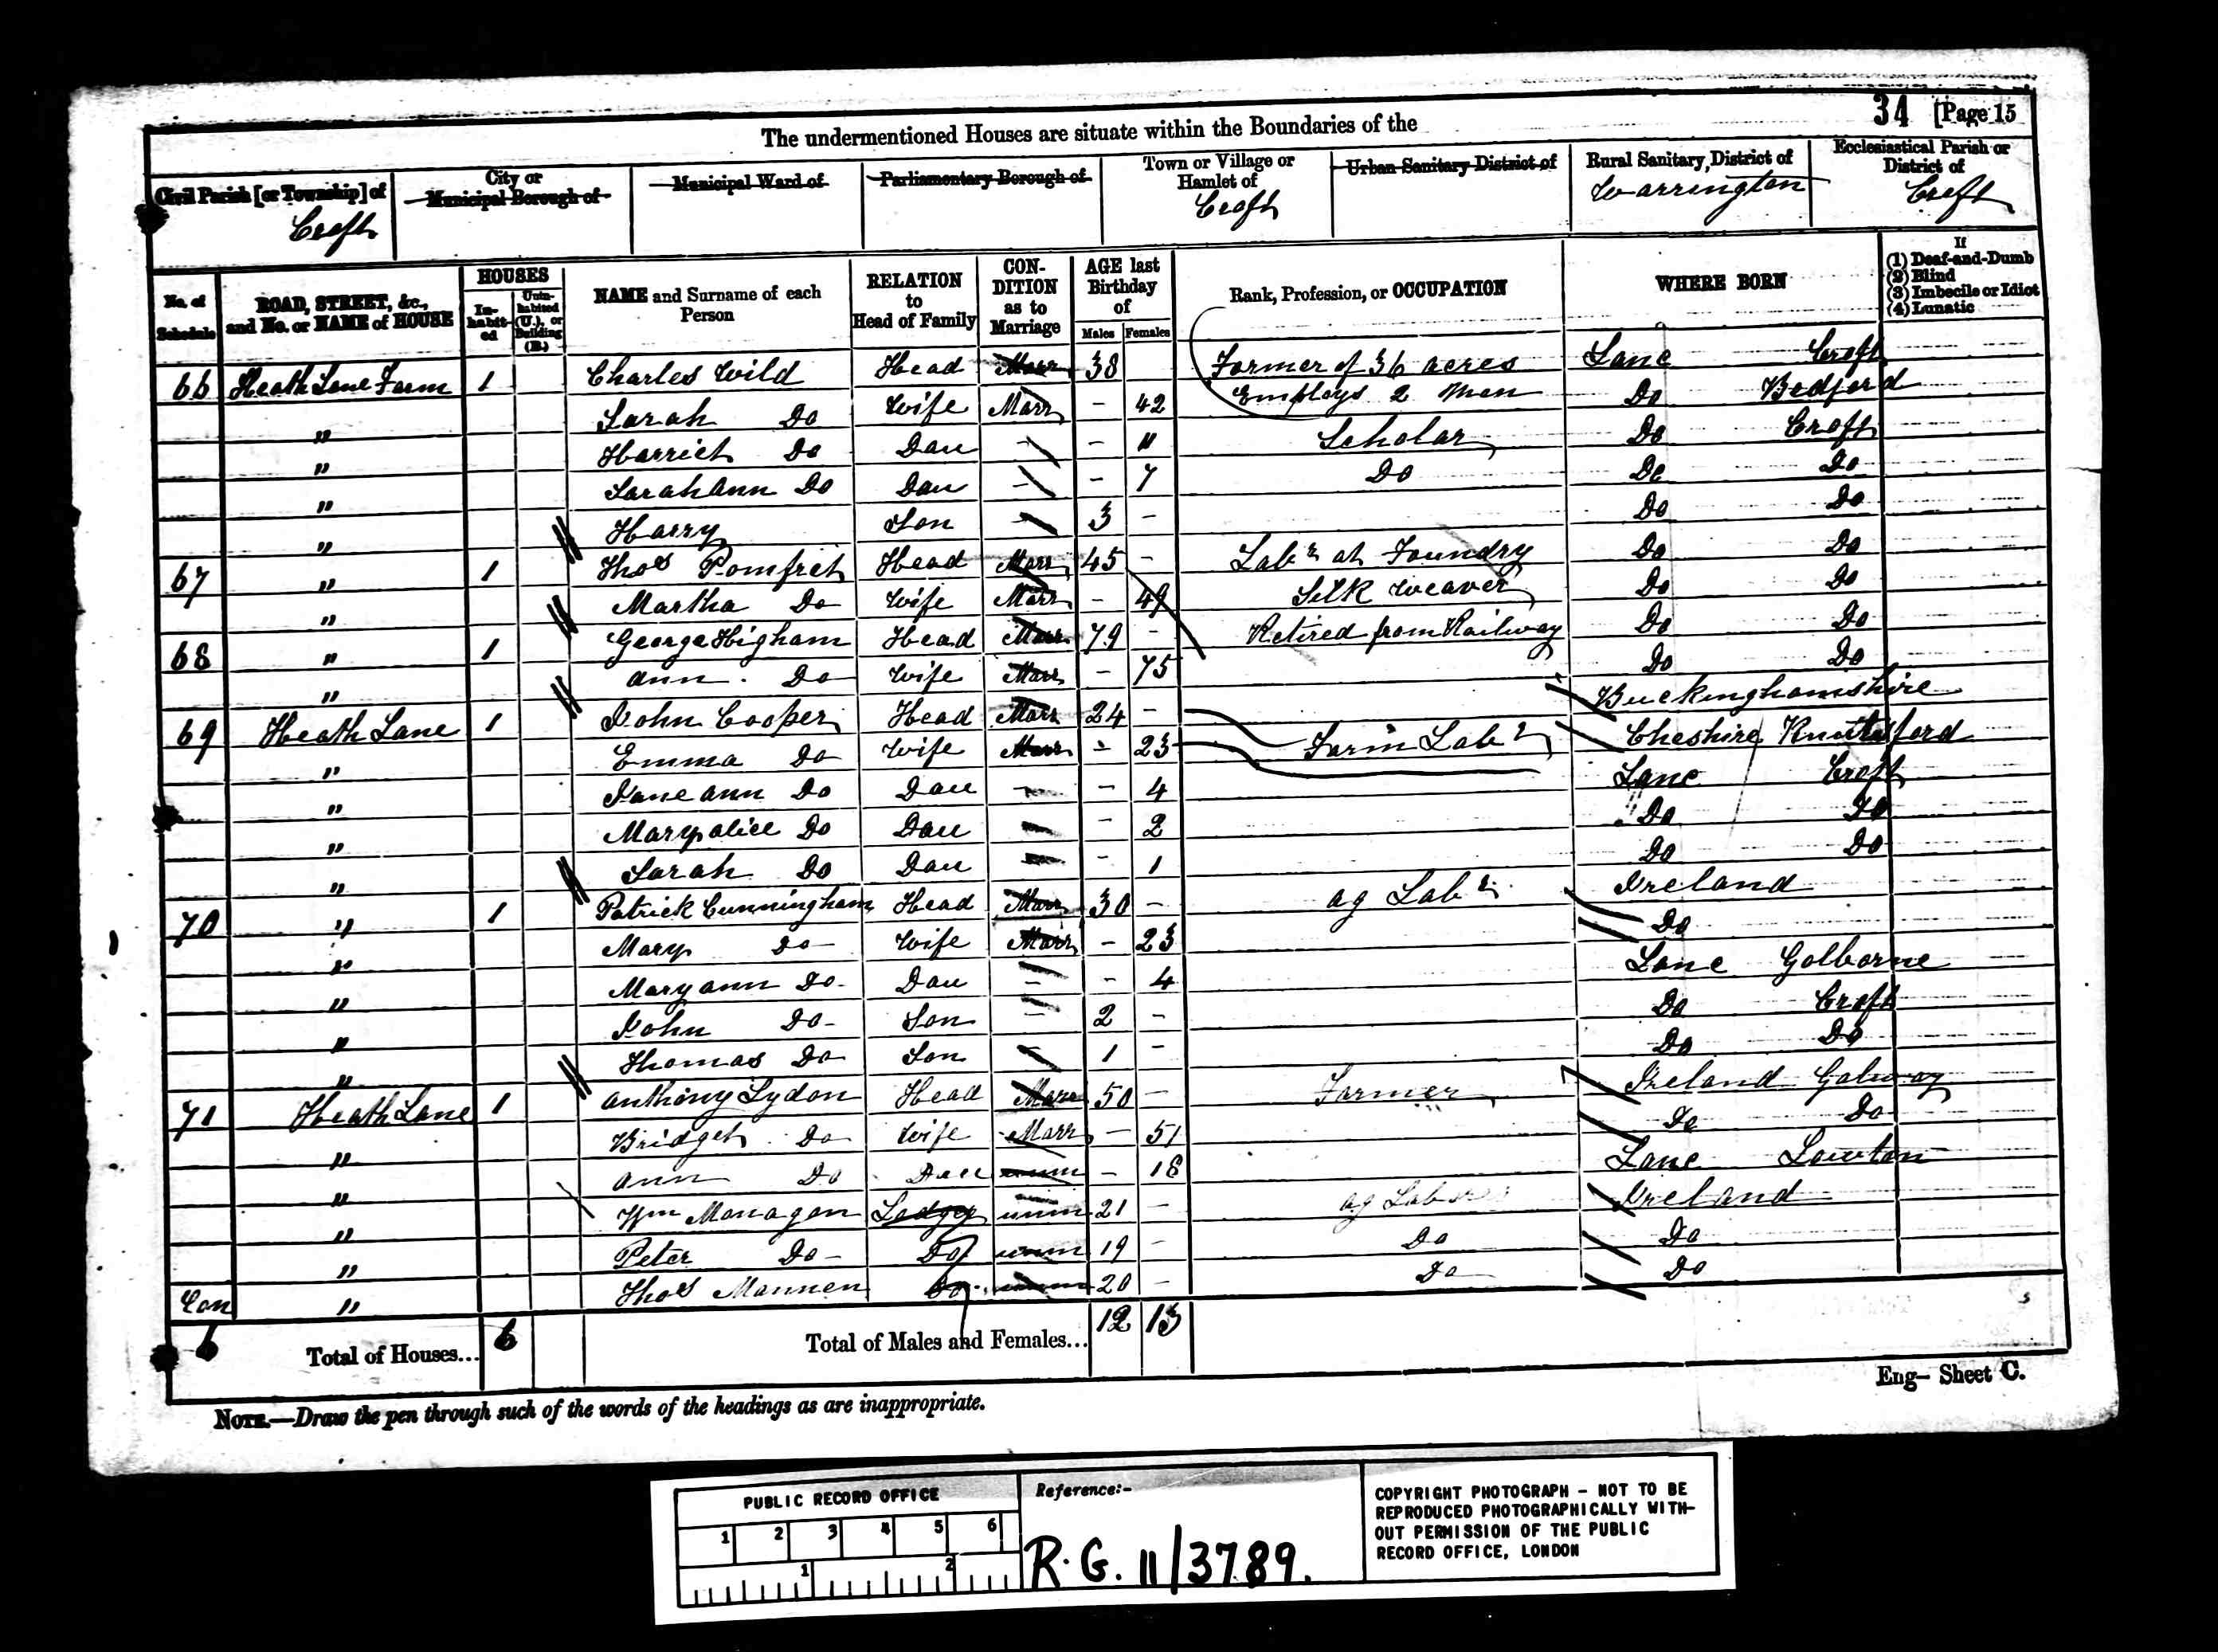 34 [Page 15
The undermentioned Houses are situate within the Boundaries of the
Civil Parish [or Township] of City or Municipal Borough of Municipal Ward of Parliamentary Borough of Town or Village or Hamlet of Urban Sanitary District of Rural Sanitary District of Ecclesiastical Parish or District of
Croft Croft Warrington Croft
No. of Schedule ROAD, STREET, &c., and No. or NAME of HOUSE HOUSES Inhabited Uninhabited (U.), or Building (B.) NAME and Surname of each Person RELATION to Head of Family CONDITION as to Marriage AGE last Birthday of Males Females Rank, Profession, or OCCUPATION WHERE BORN If (1) Deaf-and-Dumb (2) Blind (3) Imbecile or Idiot (4) Lunatic
66 Heath Lane Farm 1 Charles Wild Head Marr 38 Farmer of 36 acres Lanc Croft
" Sarah Do Wife Marr - 42 Employs 2 Men Do Bedford
" Harriet Do Dau - - 11 Scholar Do Croft
" Sarah Ann Do Dau - - 7 Do Do Do
" Harry Son - 3 - Do Do
67 " 1 Thos Pomfret Head Marr 45 - Labr at Foundry Do Do
" Martha Do Wife Marr - 49 Silk Weaver Do Do
68 " 1 George Higham Head Marr 79 - Retired from Railway Do Do
" Ann Do Wife Marr - 75 Do Do
69 Heath Lane 1 John Cooper Head Marr 24 - Farm Labr Buckinghamshire
" Emma Do Wife Marr - 23 Cheshire Knutsford
" Jane Ann Do Dau - - 4 Lanc Croft
" Mary Alice Do Dau - - 2 Do Do
" Sarah Do Dau - - 1 Do Do
70 " 1 Patrick Cunningham Head Marr 30 - Ag Labr Ireland
" Mary Do Wife Marr - 23 Do
" Mary Ann Do Dau - - 4 Lanc Golborne
" John Do Son - 2 - Do Croft
" Thomas Do Son - 1 - Do Do
71 Heath Lane 1 Anthony Lydon Head Marr 50 - Farmer Ireland Galway
" Bridget Do Wife Marr - 51 Do Do
" Ann Do Dau unm - 18 Lanc Lowton
" Wm Monagan Lodger unm 21 - Ag Labr Ireland
" Peter Do Do unm 19 - Do Do
Con " Thos Mannen Do unm 20 - Do Do
6 Total of Houses... 6 Total of Males and Females... 12 13
Eng- Sheet C.
NOTE.—Draw the pen through such of the words of the headings as are inappropriate.
PUBLIC RECORD OFFICE
1 2 3 4 5 6
1 2
Reference:-
R.G. 11/3789.
COPYRIGHT PHOTOGRAPH - NOT TO BE
REPRODUCED PHOTOGRAPHICALLY WITH-
OUT PERMISSION OF THE PUBLIC
RECORD OFFICE, LONDON